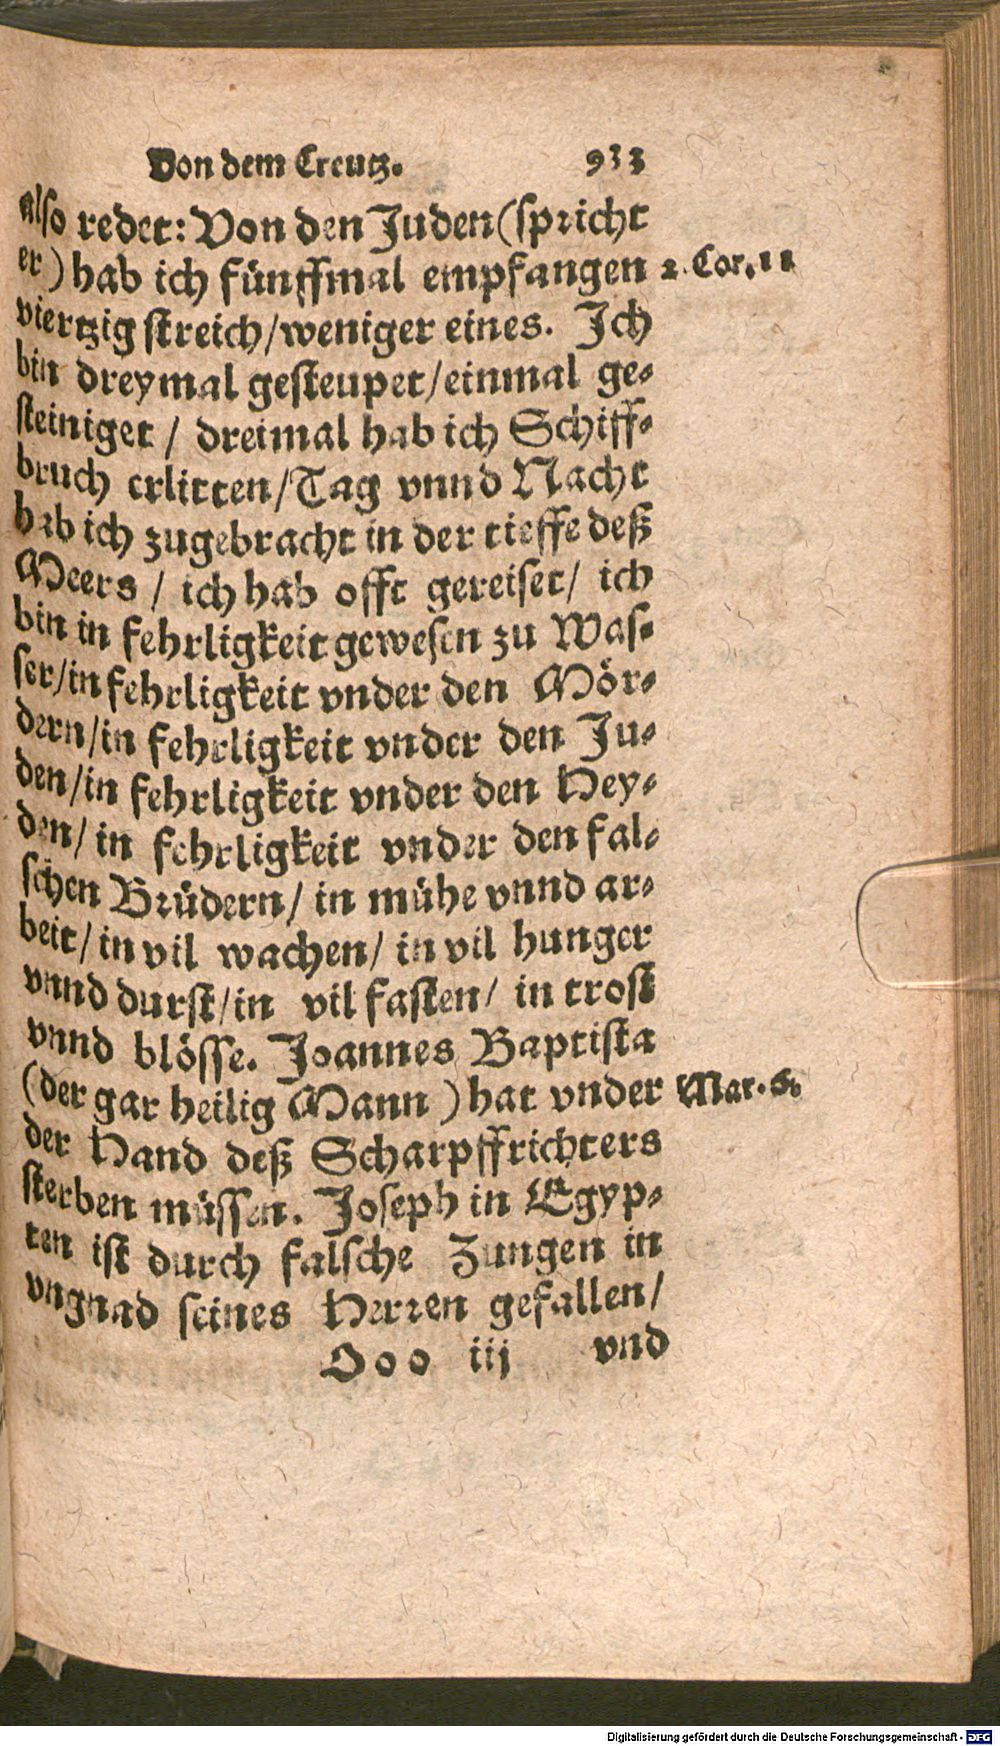 Von dem Creutz. 933
Also redet: Von den Juden (spricht
er) hab ich fünffmal empfangen 2. Cor. 11
viertzig streich / weniger eines. Ich
bin dreymal gesteupet / einmal ge-
steiniget / dreimal hab ich Schiff-
bruch erlitten / Tag vnnd Nacht
hab ich zugebracht in der tieffe deß
Meers / ich hab offt gereiset / ich
bin in fehrligkeit gewesen zu Was-
ser / in fehrligkeit vnder den Mör-
dern / in fehrligkeit vnder den Ju-
den / in fehrligkeit vnder den Hey-
den / in fehrligkeit vnder den fal-
schen Brüdern / in mühe vnnd ar-
beit / in vil wachen / in vil hunger
vnnd durst / in vil fasten / in trost
vnnd blösse. Joannes Baptista
(der gar heilig Mann) hat vnder Mar. 6.
der Hand deß Scharpffrichters
sterben müssen. Joseph in Egyp-
ten ist durch falsche Zungen in
vngnad seines Herren gefallen /
Ooo iij vnd
Digitalisierung gefördert durch die Deutsche Forschungsgemeinschaft - DFG